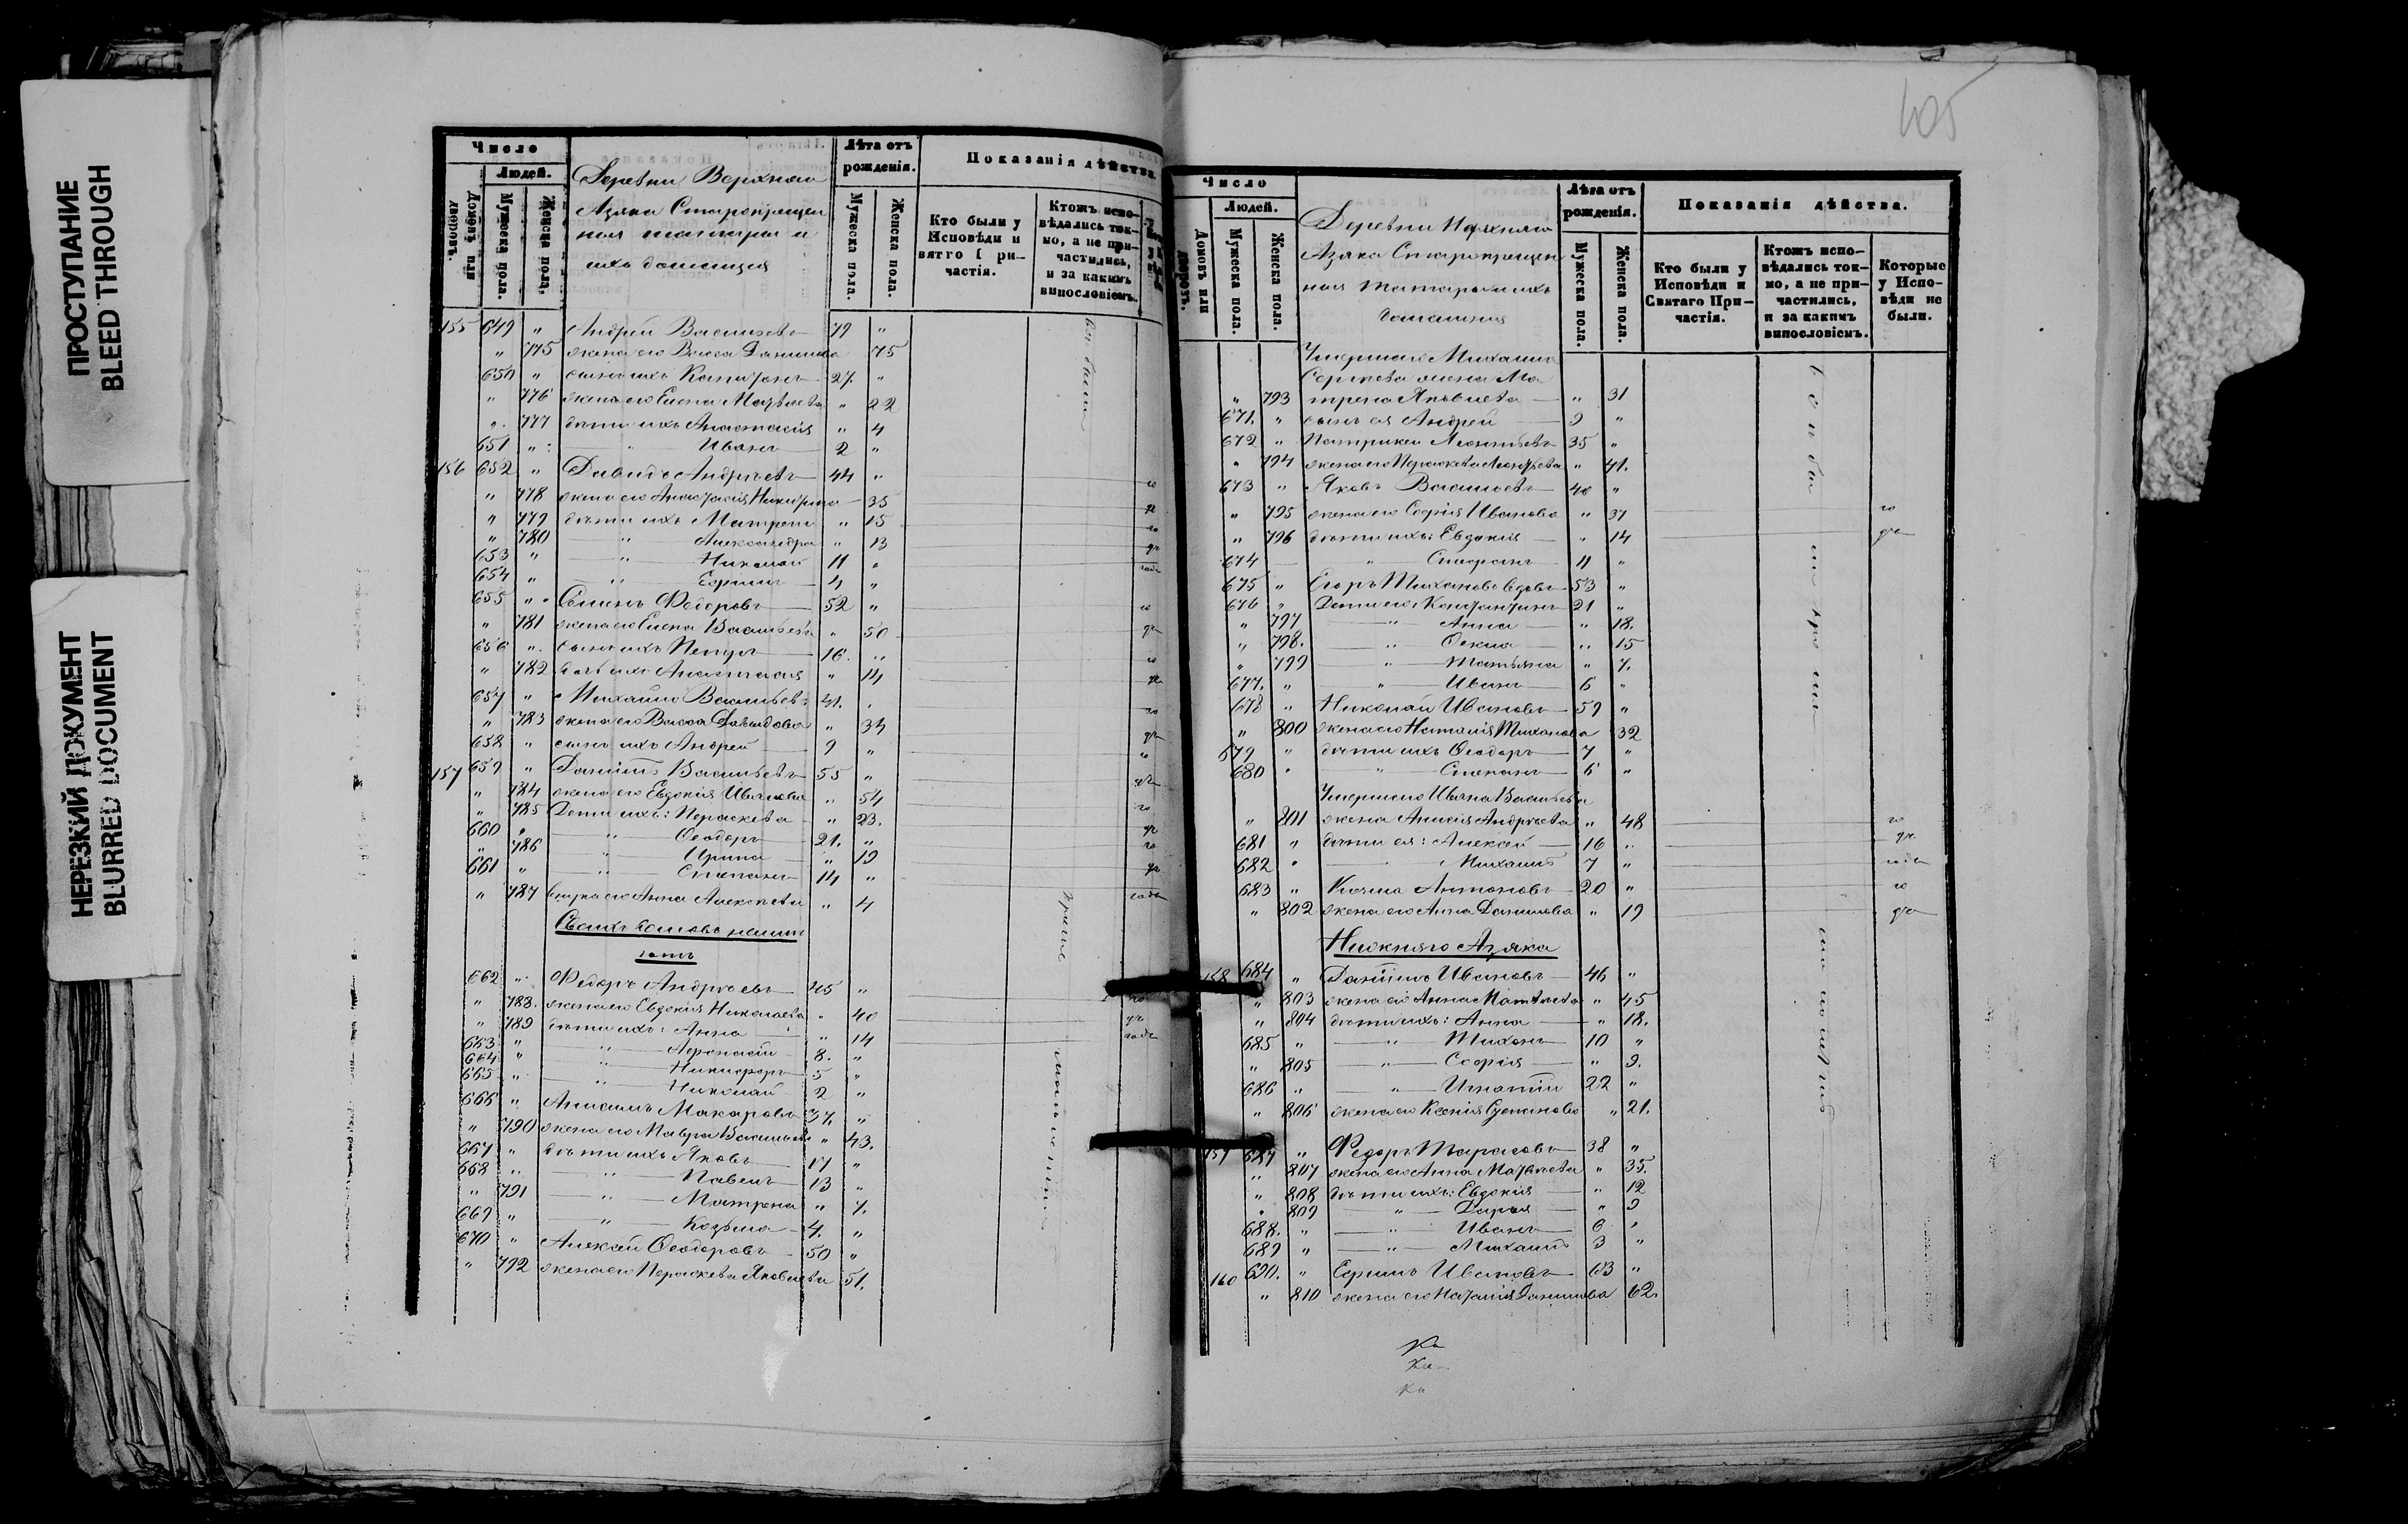 ПРОСТУПАНИЕ
BLEED THROUGH
НЕРЕЗКИЙ ДОКУМЕНТ
BLURRED DOCUMENT
Число
Людей.
Домовъ или дворовъ.
Мужеска пола.
Женска пола.
Деревни Верхняго
Азяка Старокрещен
ныя татары и
ихъ домашнiя
Лѣта отъ рожденiя.
Мужеска пола.
Женска пола.
Показанiя дѣйства.
Кто были у Исповѣди и
частiя.
Ктожъ испо-
вѣдались ток-
мо, а не при-
частились,
и за какимъ
винословiемъ.
155 649 " Андрей Васильевъ 79 "
" 775 жена его Васса Данилова 75
650 " сынъ ихъ Капитонъ 27. "
" 776 жена его Елена Матвѣева " 22
" 777 дѣти ихъ Анастасiя " 4
651 " " Иванъ 2 "
156 652 " Давидъ Андреевъ 44 "
" 778 жена его Анастасiя Никитина 35
" 779 дѣти ихъ Матрена " 15
" 780 " Александра " 13
653 " " Николай 11 "
654 " " Ефимъ 4 "
655 " Семенъ Федоровъ 52 "
" 781 жена его Елена Васильева " 50
656 " сынъ ихъ Петръ 16. "
" 782 дочь ихъ Анастасiя " 14
657 " Михайло Васильевъ 41. "
" 783 жена его Васса Давидова " 34
658 " сынъ ихъ Андрей 9 "
157 659 " Данiилъ Васильевъ 55 "
" 784 жена его Евдокiя Иванова " 54
" 785 Дети ихъ: Параскева " 23.
660 " " Ѳеодоръ 21. "
" 786 " Ирина " 19
661 " " Степанъ 14 "
" 787 внучка его Анна Алексѣева " 4
Своихъ домовъ неимѣ
ютъ
662 " Федоръ Андреевъ 45 "
" 788. жена его Евдокiя Николаева " 40
" 789 дѣти ихъ: Анна " 14
663 " " Афонасiй 8. "
664 " " Никифоръ 5 "
665 " " Николай 2 "
666 " Анисимъ Макаровъ 37, "
" 790 жена его Мавра Васильева " 43.
667 " дѣти ихъ Яковъ 17 "
668 " " Павелъ 13 "
" 791 " Матрена " 7.
669 " " Козьма 4. "
670 " Алексѣй Ѳеодоровъ 50 "
" 792 жена его Параскева Яковлева 51.
405
Число
Людей.
Домовъ или дворовъ.
Мужеска пола.
Женска пола.
Деревни Верхняго
Азяка Старокрещен
ныя татары и ихъ
домашнiя
Лѣта отъ рожденiя.
Мужеска пола.
Женска пола.
Показанiя дѣйства.
Кто были у
Исповѣди и
Святаго При-
частiя.
Ктожъ испо-
вѣдались ток-
мо, а не при-
частились,
и за какимъ
винословiемъ.
Которые
у Испо-
вѣди не
были.
Умершаго Михаила
Сергѣева жена Ма
" 793 трена Яковлева " 31
671. " сынъ ея Андрей 9 "
672 " Патрикей Леонтьевъ 35 "
" 794 жена его Параскева Леонтьева " 41.
673 " Яковъ Васильевъ 40 "
" 795 жена его Софiя Иванова " 37
" 796 дѣти ихъ: Евдокiя " 14
674 " Стефанъ 11 "
675 " Егоръ Тихоновъ вдовъ 53 "
676 " Дети его: Константинъ 21 "
" 797 " Анна " 18.
" 798. " " 15
" 799 " Татьяна " 7.
677. " " Иванъ 6 "
678 " Николай Ивановъ 59 "
" 800 жена его Наталiя Тихонова 32
679 " дѣти ихъ Ѳеодоръ 7 "
680 " " Степанъ 6 "
Умершаго Ивана Васильева
" 801 жена Анисiя Андреева " 48
681 " дѣти ея: Алексѣй 16 "
682 " " Михаилъ 7 "
683 " Козма Антоновъ 20 "
" 802 жена его Анна Данилова " 19
Нижняго Азяка
158 684 " Данiилъ Ивановъ 46 "
" 803 жена его Анна Матвѣева " 45
" 804 дѣти ихъ: Анна " 18.
685 " " Тихонъ 10 "
" 805 " Софiя " 9.
686 " " Игнатiй 22 "
" 806 жена его Ксенiя Степанова " 21.
159 687 " Федоръ Тарасовъ 38 "
" 807 жена его Анна Матвѣева " 35.
" 808 дѣти ихъ: Евдокiя " 12
" 809 " Дарья " 9
688. " " Иванъ 6 "
689 " " Михаилъ 3 "
160 690. " Ефимъ Ивановъ 63 "
" 810 жена его Наталiя Данилова 62.